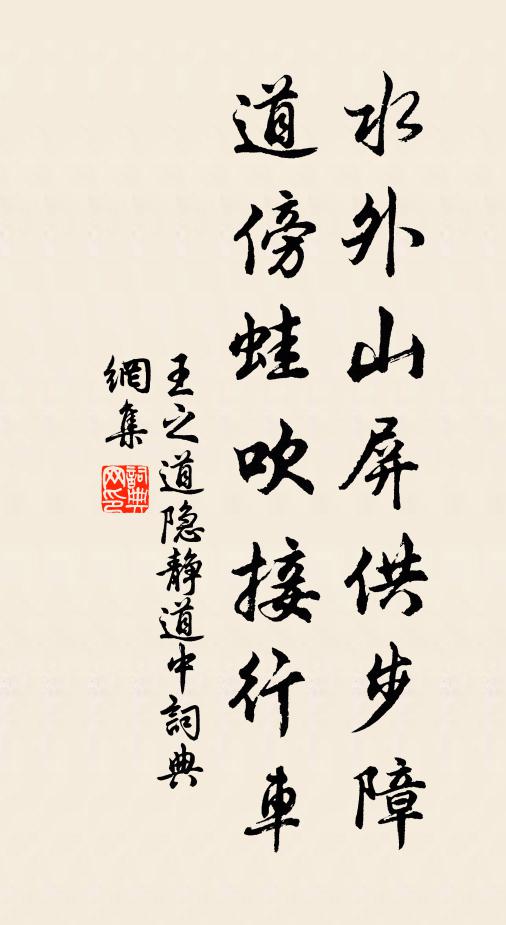 水外山屏供步障
道傍蛙吹接行車
王之道隐静道中詞典
網集
詞典網印